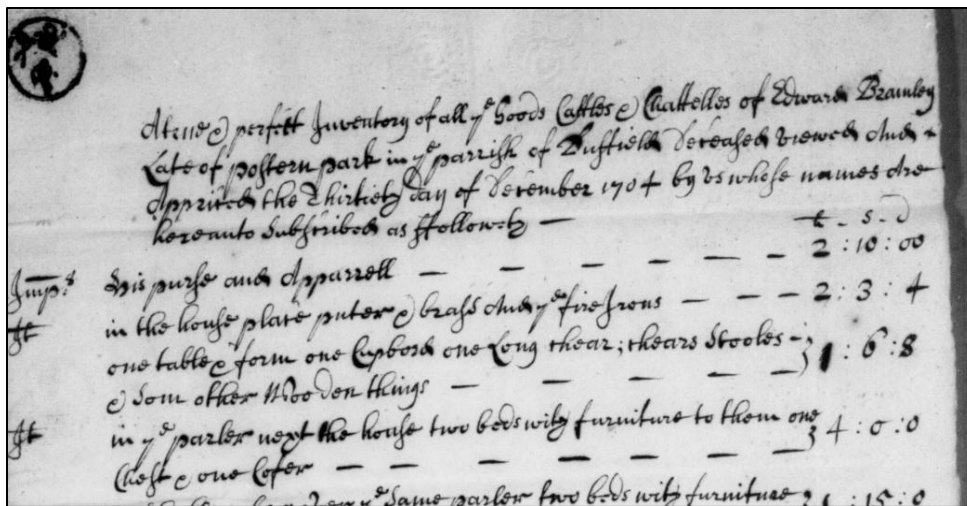 A true & perfect Inventory of all ye Goods Cattles & Chattelles of Edward Bramley
Late of postern park in ye parrish of Duffield Deceased viewed And
Apprised the Thirtieth day of December 1704 by vs whose names Are
hereunto Subscribed as ffolloweth — £ - s - D
Imps his purse and Apparrell — — — — — — 2 : 10 : 00
It in the house plate puter & brass And ye fire Irons — — — 2 : 3 : 4
one table & form one Cupbord one Long chear ; chears Stooles -
& Som other Wooden things — — — — — } 1 : 6 : 8
It in ye parler next the house two beds with furniture to them one
Chest & one Cofer — — — — — — } 4 : 0 : 0
ye Same parler two beds with furniture : 15 : 0